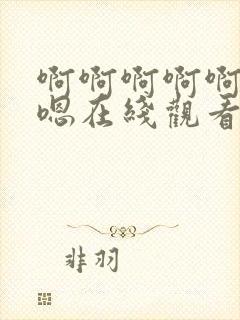 啊啊啊啊啊
嗯在綫觀看
非羽